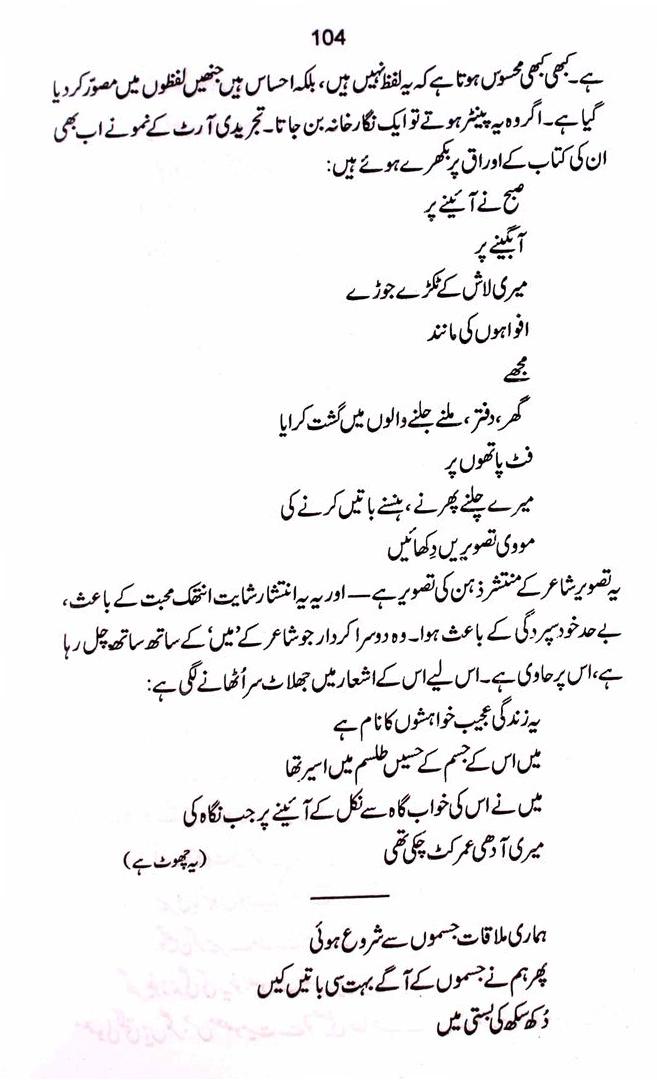 104
ہے۔ کبھی کبھی محسوس ہوتا ہے کہ یہ لفظ نہیں ہیں، بلکہ احساس ہیں جنھیں لفظوں میں مصوّر کر دیا
گیا ہے۔ اگر وہ یہ پینٹر ہوتے تو ایک نگار خانہ بن جاتا۔ تجریدی آرٹ کے نمونے اب بھی
ان کی کتاب کے اوراق پر بکھرے ہوئے ہیں:
صبح نے آئینے پر
آبگینے پر
میری لاش کے ٹکڑے جوڑے
افواہوں کی مانند
مجھے
گھر، دفتر، ملنے جلنے والوں میں گشت کرایا
فٹ پاتھوں پر
میرے چلنے پھرنے، ہنسنے باتیں کرنے کی
مووی تصویریں دِکھائیں
یہ تصویر شاعر کے منتشر ذہن کی تصویر ہے — اور یہ یہ انتشار شایت انتھک محبت کے باعث،
بے حد خود سپردگی کے باعث ہوا۔ وہ دوسرا کردار جو شاعر کے ’میں‘ کے ساتھ ساتھ چل رہا
ہے، اس پر حاوی ہے۔ اس لیے اس کے اشعار میں جھلاٹ سر اُٹھانے لگی ہے:
یہ زندگی عجیب خواہشوں کا نام ہے
میں اس کے جسم کے حسیں طلسم میں اسیر تھا
میں نے اس کی خواب گاہ سے نکل کے آئینے پر جب نگاہ کی
میری آدھی عمر کٹ چکی تھی (یہ جھوٹ ہے)
ہماری ملاقات جسموں سے شروع ہوئی
پھر ہم نے جسموں کے آگے بہت سی باتیں کیں
دُکھ سکھ کی بستی میں